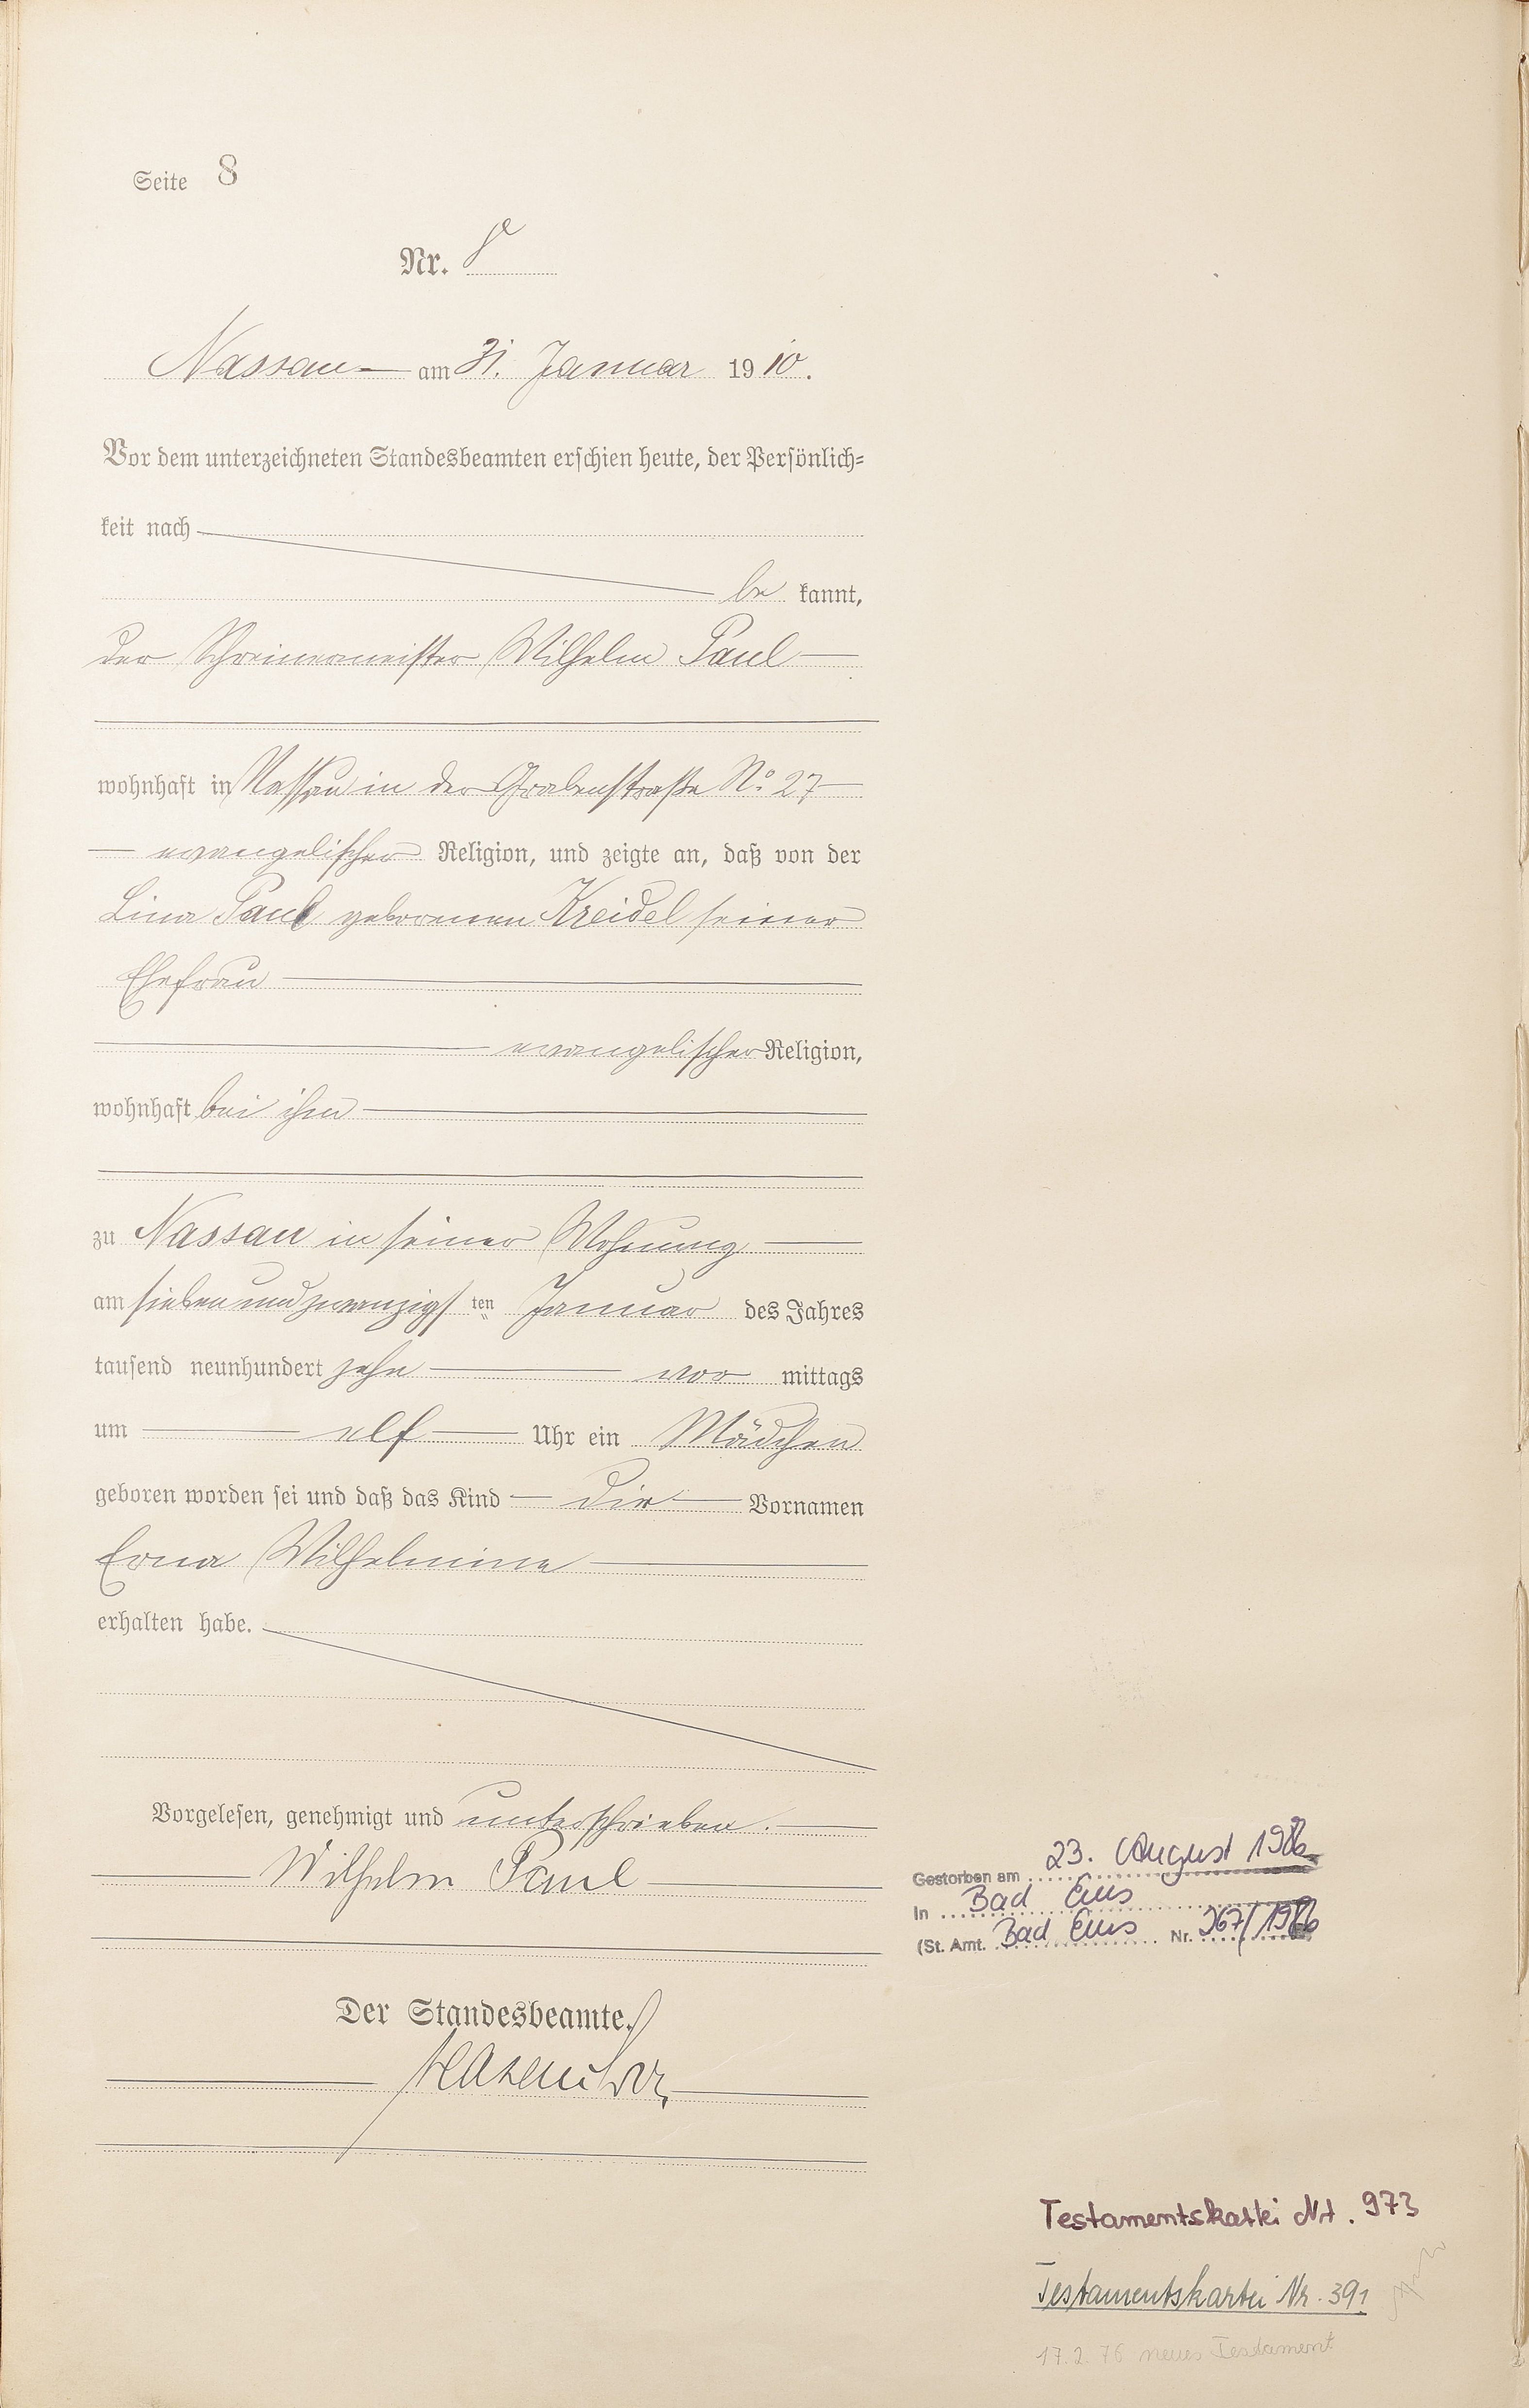 Seite 8
Nr. 8
Nassau am 31. Januar 1910.
Vor dem unterzeichneten Standesbeamten erschien heute, der Persönlich-
keit nach
be kannt,
der Schreinermeister Wilhelm Paul
wohnhaft in Nassau in der Grabenstraße No. 27
evangelischer Religion, und zeigte an, daß von der
Lina Paul geborenen Kreidel seiner
Ehefrau
evangelischer Religion,
wohnhaft bei ihm
zu Nassau in seiner Wohnung
am siebenundzwanzigsten Januar des Jahres
tausend neunhundert zehn vor mittags
um elf Uhr ein Mädchen
geboren worden sei und daß das Kind die Vornamen
Erna Wilhelmine
erhalten habe.
Vorgelesen, genehmigt und unterschrieben.
Wilhelm Paul
Der Standesbeamte.
Gestorben am 23. August 1986
In Bad Ems
(St. Amt. Bad Ems Nr. 267/1986
Testamentskartei Nr. 973
Testamentskartei Nr. 391
17.2.76 neues Testament